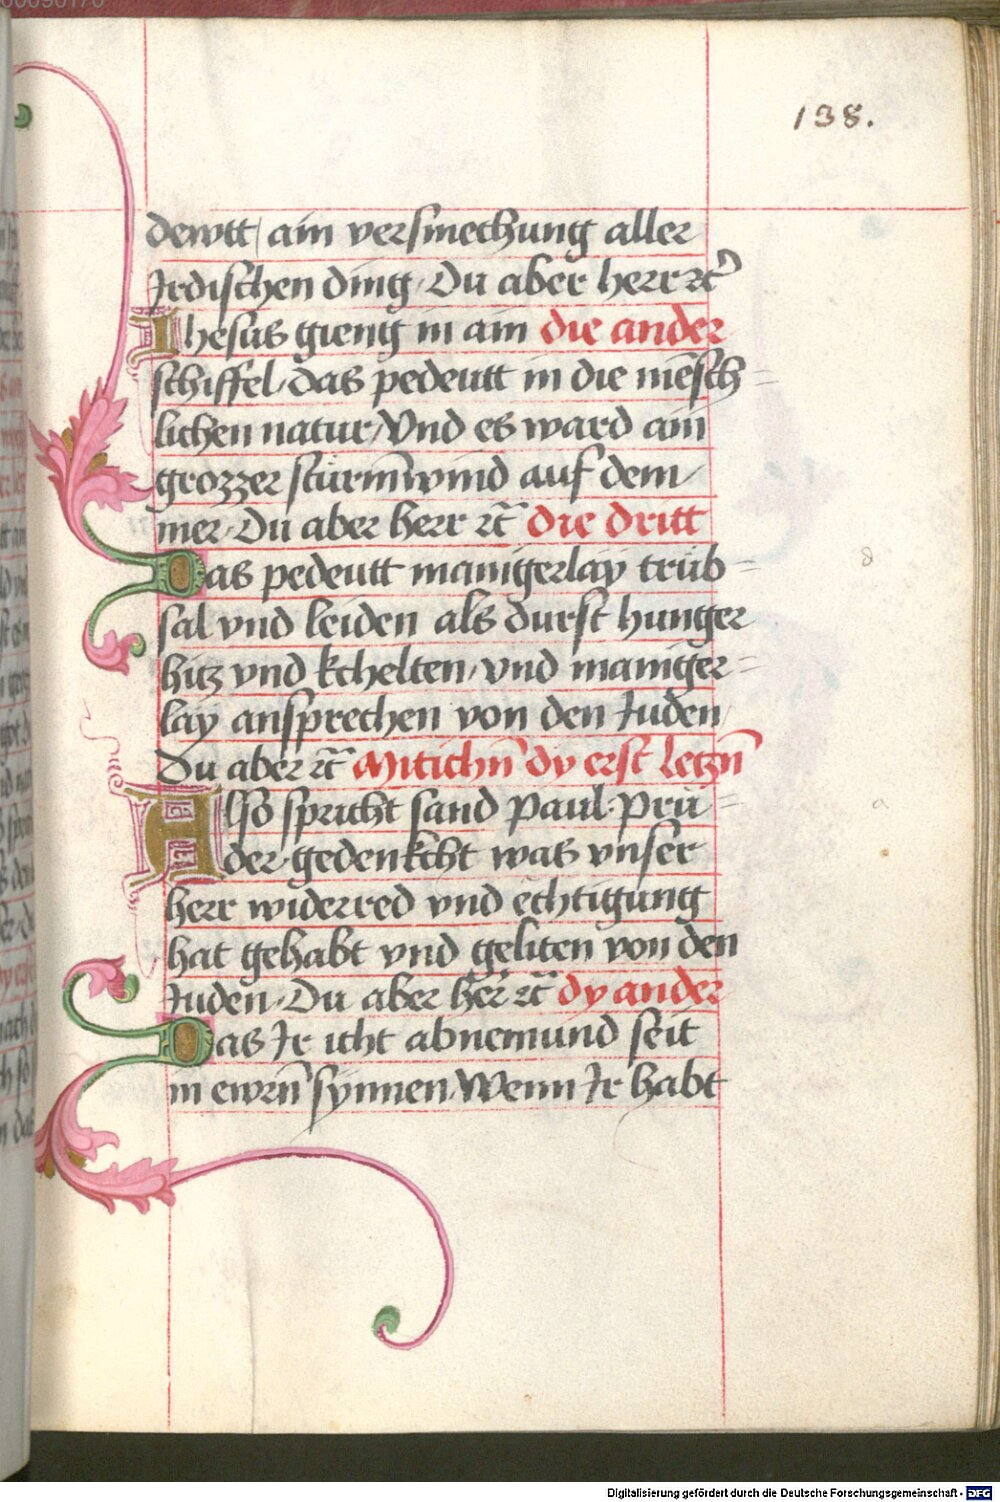 138.
dewtt / ain versmechung aller
Jrdischen ding / Du aber herr rc̃
Jhesus gieng in ain die ander
schiffel / das pedeutt in die mẽsch=
lichen natur / Vnd es ward ain
grozzer stürm̃wind auf dem
mer / Du aber herr rc̃ die dritt
Das pedeutt manigerlay trüb=
sal vnd leiden als durst hunger
hitz vnd kchelten / vnd maniger=
lay ansprechen von den Juden
Du aber rc̃ Mitichñ dy erst letzñ
Also spricht sand Paul · Prü=
der · gedenkcht was vnser
herr widerred vnd ëchtigung
hat gehabt vnd geliten von den
Juden / Du aber her̃ rc̃ dy ander
Das Jr icht abnemund seit
in ewrñ synnen / Wenn Jr habt
Digitalisierung gefördert durch die Deutsche Forschungsgemeinschaft - DFG